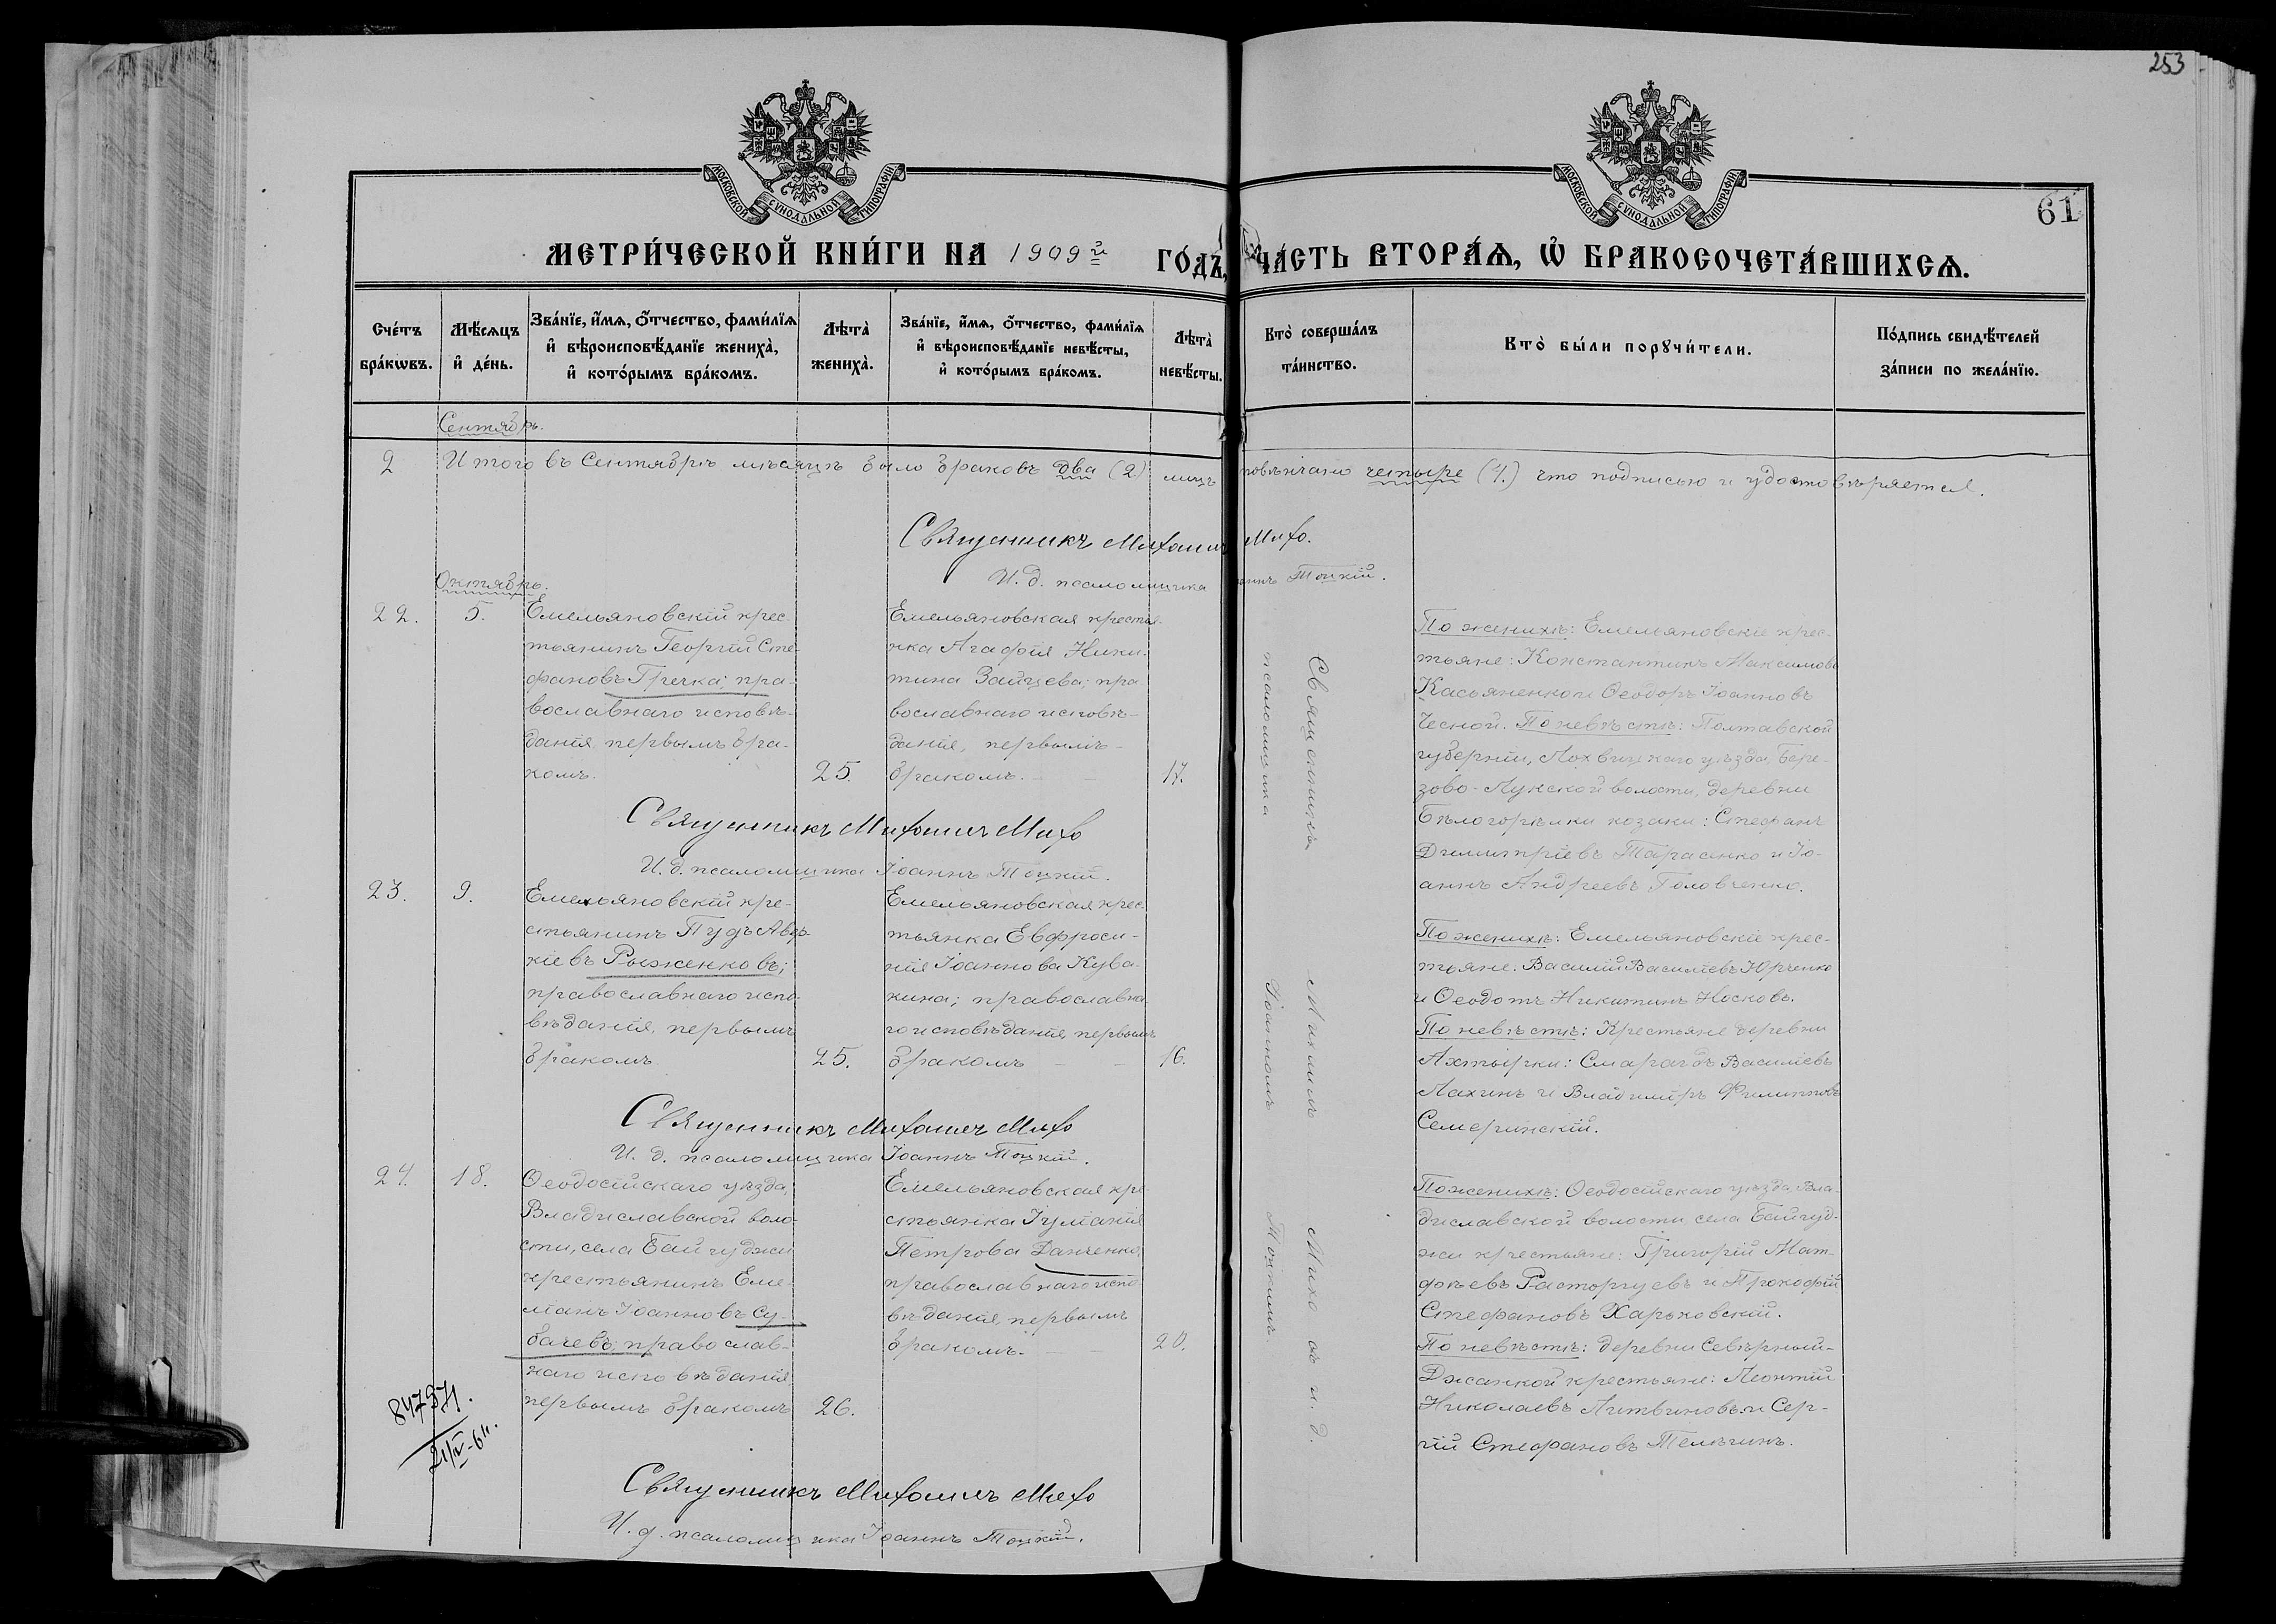 253
МОСКОВСКОЙ СѴНОДАЛЬНОЙ ТИПОГРАФІИ
МОСКОВСКОЙ СѴНОДАЛЬНОЙ ТИПОГРАФІИ
61
МЕТРИ́ЧЕСКОЙ КНИ́ГИ НА 1909й ГО́ДЪ, ЧА́СТЬ ВТОРА́Ѧ, Ѡ҆ БРАКОСОЧЕТА́ВШИХСѦ.
Сче́тъ бра́кѡвъ.
Мѣ́сѧцъ и҆ де́нь.
Зва́нїе, и҆́мѧ, ѻ҆́тчество, фами́лїѧ
и҆ вѣроисповѣ́данїе жениха̀,
и҆ кото́рымъ бра́комъ.
Лѣта̀ жениха̀.
Зва́нїе, и҆́мѧ, ѻ҆́тчество, фами́лїѧ
и҆ вѣроисповѣ́данїе невѣ́сты,
и҆ кото́рымъ бра́комъ.
Лѣта̀ невѣ́сты.
Кто̀ соверша́лъ
та́инство.
Кто̀ бы́ли порꙋчи́тели.
По́дпись свидѣ́телей
за́писи по жела́нїю.
Сентябрь.
2 Итого въ Сентябрѣ мѣсяцѣ было браковъ два (2) лицъ повѣнчано четыре (4.) что подписью и удостовѣряется.
Священникъ Михаилъ Михо.
И. д. псаломщика Іоаннъ Тоцкій.
Октябрь.
22.
5.
Емельяновскій крес-
тьянинъ Георгій Сте-
фановъ Гречка; пра-
вославнаго исповѣ-
данія, первымъ бра-
комъ.
25.
Емельяновская крестья-
нка Агафія Ники-
тина Зайцева; пра-
вославнаго исповѣ-
данія, первымъ
бракомъ.
17.
По женихѣ: Емельяновскіе крес-
тьяне: Константинъ Максимовъ
Касьяненко и Ѳеодоръ Іоанновъ
Чесной. По невѣстѣ: Полтавской
губерніи, Лохвицкаго уѣзда, Бере-
зово-Лукской волости, деревни
Бѣлогорѣлки козаки: Стефанъ
Димитріевъ Тарасенко и Іо-
аннъ Андреевъ Головченко.
Священникъ Михаилъ Михо
И. д. псаломщика Іоаннъ Тоцкій.
23.
9.
Емельяновскій кре-
стьянинъ Пудъ Авер-
кіевъ Рыженковъ;
православнаго испо-
вѣданія, первымъ
бракомъ
25.
Емельяновская крес-
тьянка Евфроси-
нія Іоаннова Кува-
кина; православна-
го исповѣданія, первымъ
бракомъ
16.
По женихѣ: Емельяновскіе крес-
тьяне: Василій Василіевъ Юрченко
и Ѳеодотъ Никитинъ Носковъ.
По невѣстѣ: Крестьяне деревни
Ахтырки: Смарагдъ Василіевъ
Лахинъ и Владиміръ Филипповъ
Семеринскій.
Священникъ Михаилъ Михо
И. д. псаломщика Іоаннъ Тоцкій.
24.
18.
Ѳеодосійскаго уѣзда,
Владиславской воло-
сти, села Байгуджи
крестьянинъ Еми-
ліанъ Іоанновъ Су-
бачевъ; православ-
наго исповѣданія,
первымъ бракомъ
26.
Емельяновская кре-
стьянка Іуліанія
Петрова Данченко,
православнаго испо-
вѣданія, первымъ
бракомъ.
20.
По женихѣ: Ѳеодосійскаго уѣзда Вла-
диславской волости села Байгуд-
жи крестьяне: Григорій Мат-
фѣевъ Расторгуевъ и Прокофій
Стефановъ Харьковскій.
По невѣстѣ: деревни Сѣверный-
Джанкой крестьяне: Леонтій
Николаевъ Литвиновъ и Сер-
гій Стефановъ Телѣгинъ.
Священникъ Михаилъ Михо
И. д. псаломщика Іоаннъ Тоцкій.
Священникъ Михаилъ Михо съ и. д.
псаломщика Іоанномъ Тоцкимъ.